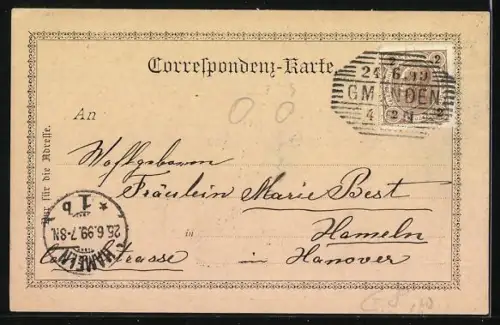 Correspondenz-Karte.
2 2
24 6 99
GMUNDEN
4
2 2
An
Wohlgeboren
Fräulein Marie Best
in Hameln
strasse in Hanover
Nur für die Adresse.
* 1 b
25.6.99.7-8N.
HAMELN